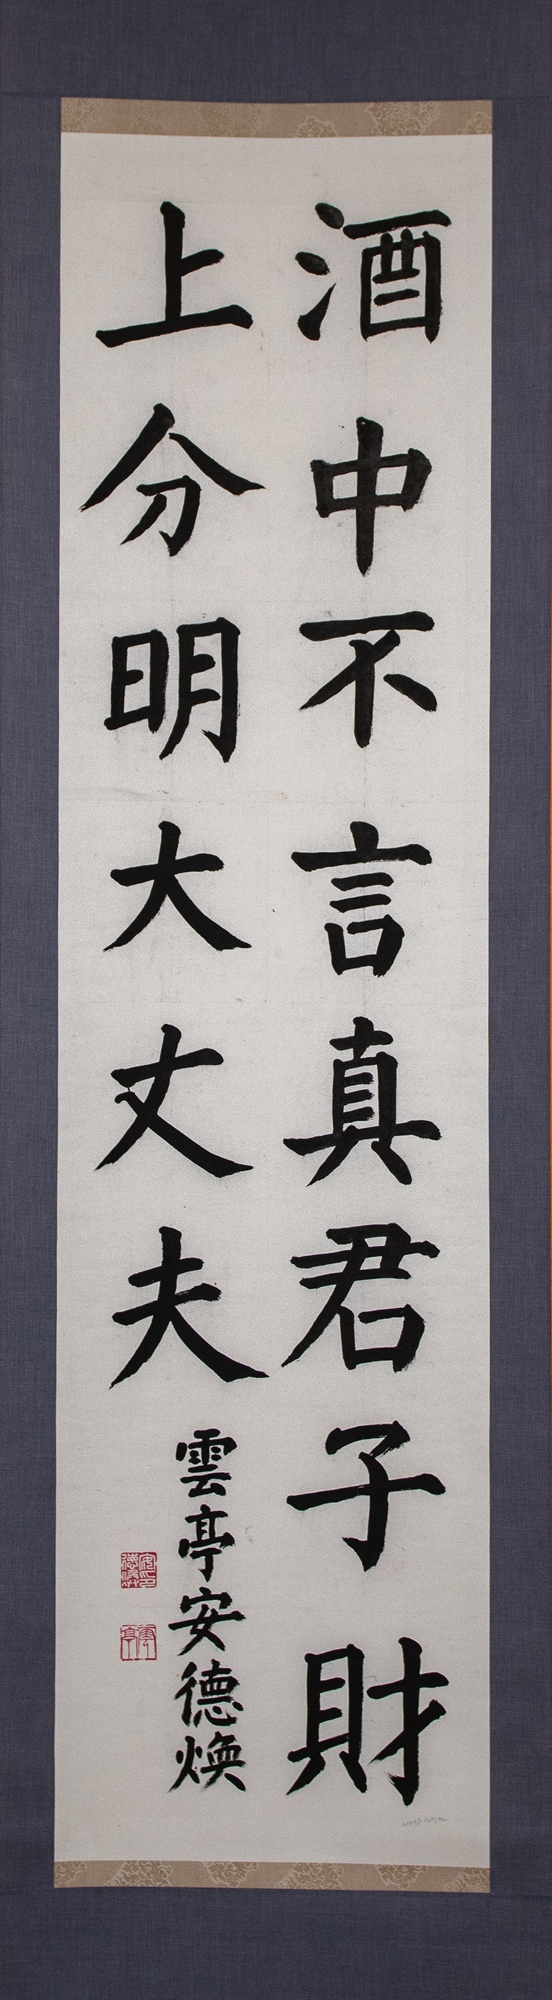 酒中不言真君子財
上分明大丈夫
雲亭安德煥